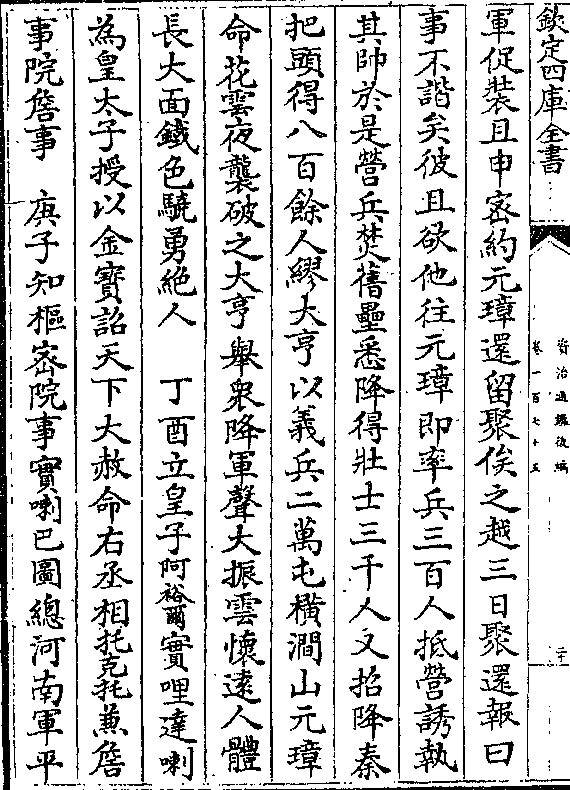 欽定四庫全書
資治通鑑後編
卷一百七十五
二十
軍促裝且申密約元璋還留聚俟之越三日聚還報曰
事不諧矣彼且欲他往元璋即率兵三百人抵營誘執
其帥於是營兵焚舊壘悉降得壯士三千人又招降秦
把頭得八百餘人繆大亨以義兵二萬屯橫澗山元璋
命花雲夜襲破之大亨舉衆降軍聲大振雲懷遠人體
長大面鐵色驍勇絶人　丁酉立皇子阿裕爾實哩達喇
為皇太子授以金寶詔天下大赦命右丞相托克托兼詹
事院詹事　庚子知樞密院事實喇巴圖總河南軍平